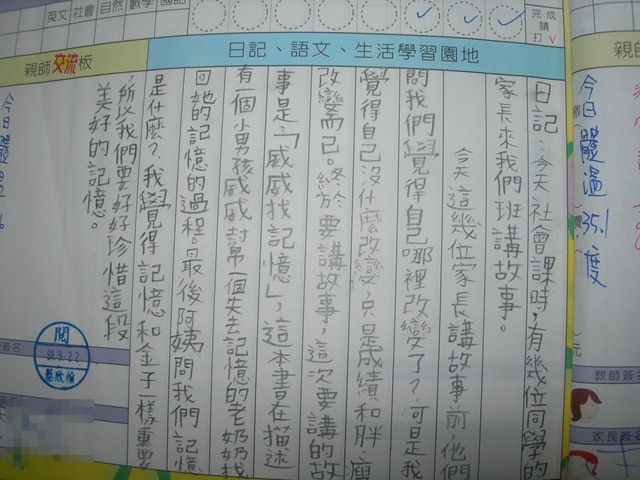 英文 社會 自然 數學 國語
完成請打✓
日記、語文、生活學習園地
親師交流板
日記:今天社會課時,有幾位同學的
家長來我們班講故事。
今天這幾位家長講故事前,他們
問我們覺得自己哪裡改變了?可是我
覺得自己沒什麼改變,只是成績和胖、瘦
改變而已。終於要講故事,這次要講的故
事是「威威找記憶」,這本書在描述
有一個小男孩威威幫一個失去記憶的老奶奶找
回她的記憶的過程。最後阿姨問我們記憶
是什麼?我覺得記憶和金子一樣重要
,所以我們要好好珍惜這段
美好的記憶。
閱
98.9.22
蔡欣怡
今日體溫35.1度
元
教師簽名
家長簽名